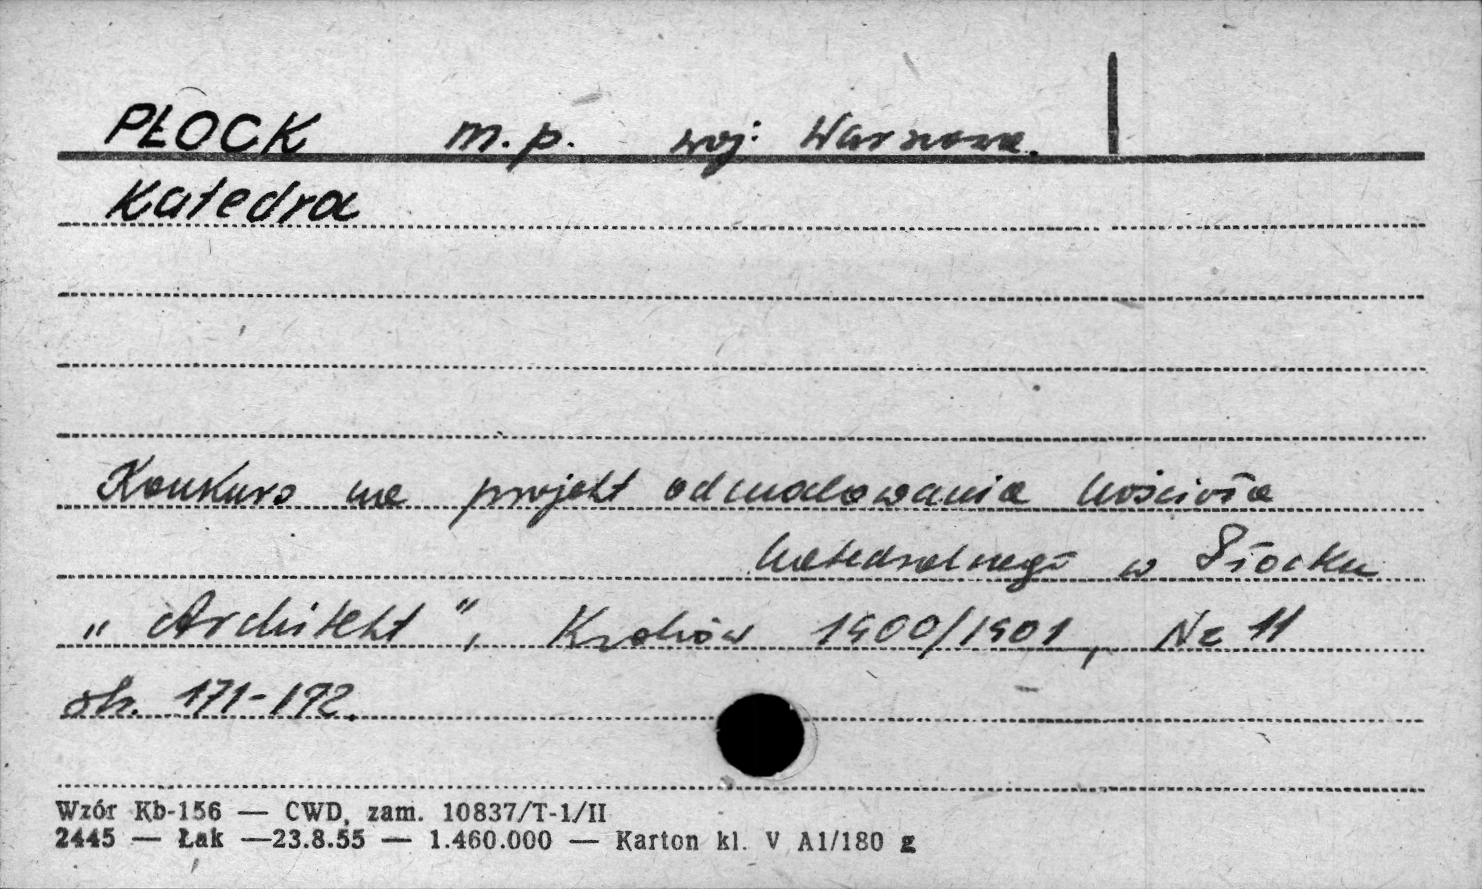 PŁOCK m.p. woj: Warszawa.
Katedra
Konkurs na projekt odmalowania kościoła
katedralnego w Płocku
„Architekt", Kraków 1900/1901, Nr 11
str. 171-172.
Wzór Kb-156 — CWD, zam. 10837/T-1/II
2445 — Łak —23.8.55 — 1.460.000 — Karton kl. V A1/180 g